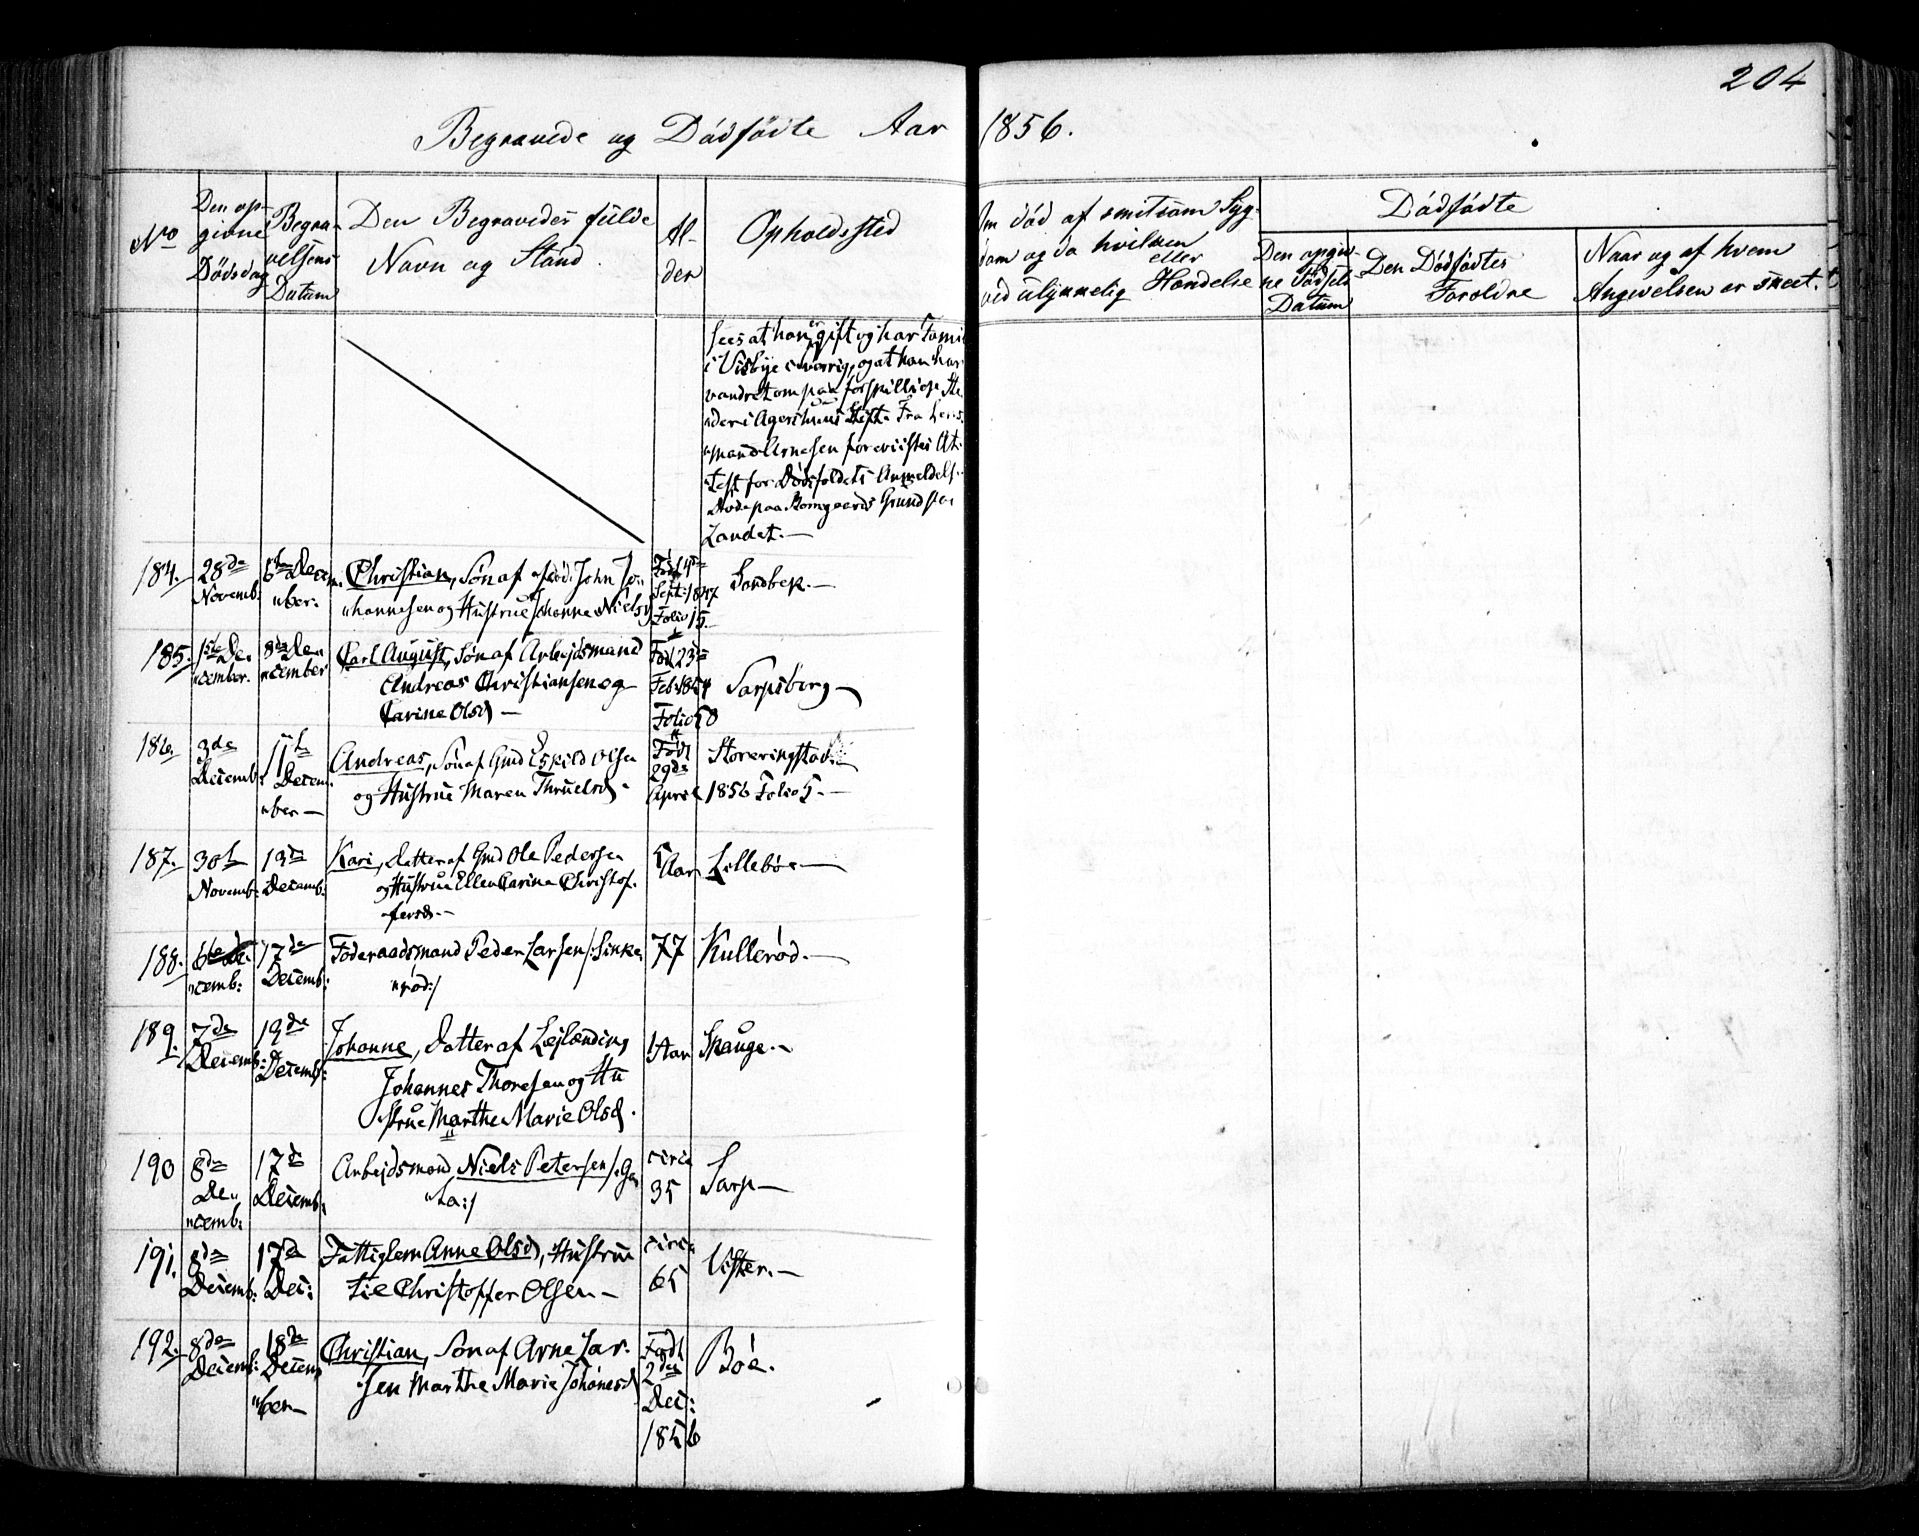 204
Begravede og Dödfödte Aar 1856.
No
Den op-
givne
Dödsdag
Begra-
velsens
Datum
Den Begravedes fulde
Navn og Stand.
Al-
der
Opholdssted
Om död af smitsom Syg-
dom og da hvilken
eller
ved ulykkelig Hændelse
Dödfödte
Den opgiv-
ne Födsels
Datum
Den Dödfödtes
Forældre
Naar og af hvem
Angivelsen er skeet.
sees at han er gift og har Fami
i Visbye i Sverrig, og at han har
vandret om paa forskillige Ste
der i Agershuus Stift. Fra Lens
mand Arnesen foreviistes At-
test for Dödsfaldets Anmeldel-
Döde paa Grund
Landet.—
184. 28de Novemb: 5te Decem ber. Christian, Sön af John Jo
hannesen og Hustrue Johanne Nielsd
Föd 4de Sept: 1847 Folio 15. Sandbek.—
185. 1ste De cember. 8de De cember Carl August, Sön af Arbejdsmand
Andreas Christiansen og
Carine Olsd —
Föd 23de Feb: 1854 Folio 50 Sarpsborg —
186. 3de Decemb: 11te Decem ber — Andreas, Sön af Gmd Eskild Olsen
og Hustrue Maren Thruelsd.
Född 29de April 1856 Folio 5.—
187. 30te Novemb: 13de Decemb: Kari, Datter af Gmd Ole Pedersen
og Hustrue Ellen Carine Christof-
fersd.—
5 Aar Lilleböe —
188. 6te De cemb: 17de Decemb: Föderaadsmand Peder Larsen /:Sinke
röd:/
77 Kulleröd.—
189. 7de Decemb: 19de Decemb: Johanne, Datter af Lejlænding
Johannes Thoresen og Hu
strue Marthe Marie Olsd.
1 Aar Skauge.—
190 8de De cemb: 17de Decemb: Arbejdsmand Niels Petersen
circa 35 Sarp —
191. 8de Decemb: 17de Dec: Fattiglem Anne Olsd, Hustrue
til Christoffer Olsen —
circa 65 Vister.—
192. 8de Decemb: 18de Decem ber — Christian, Sön af Arne Lar-
sen Marthe Marie Johanesd
Född 2den Dec: 1856 Böe.